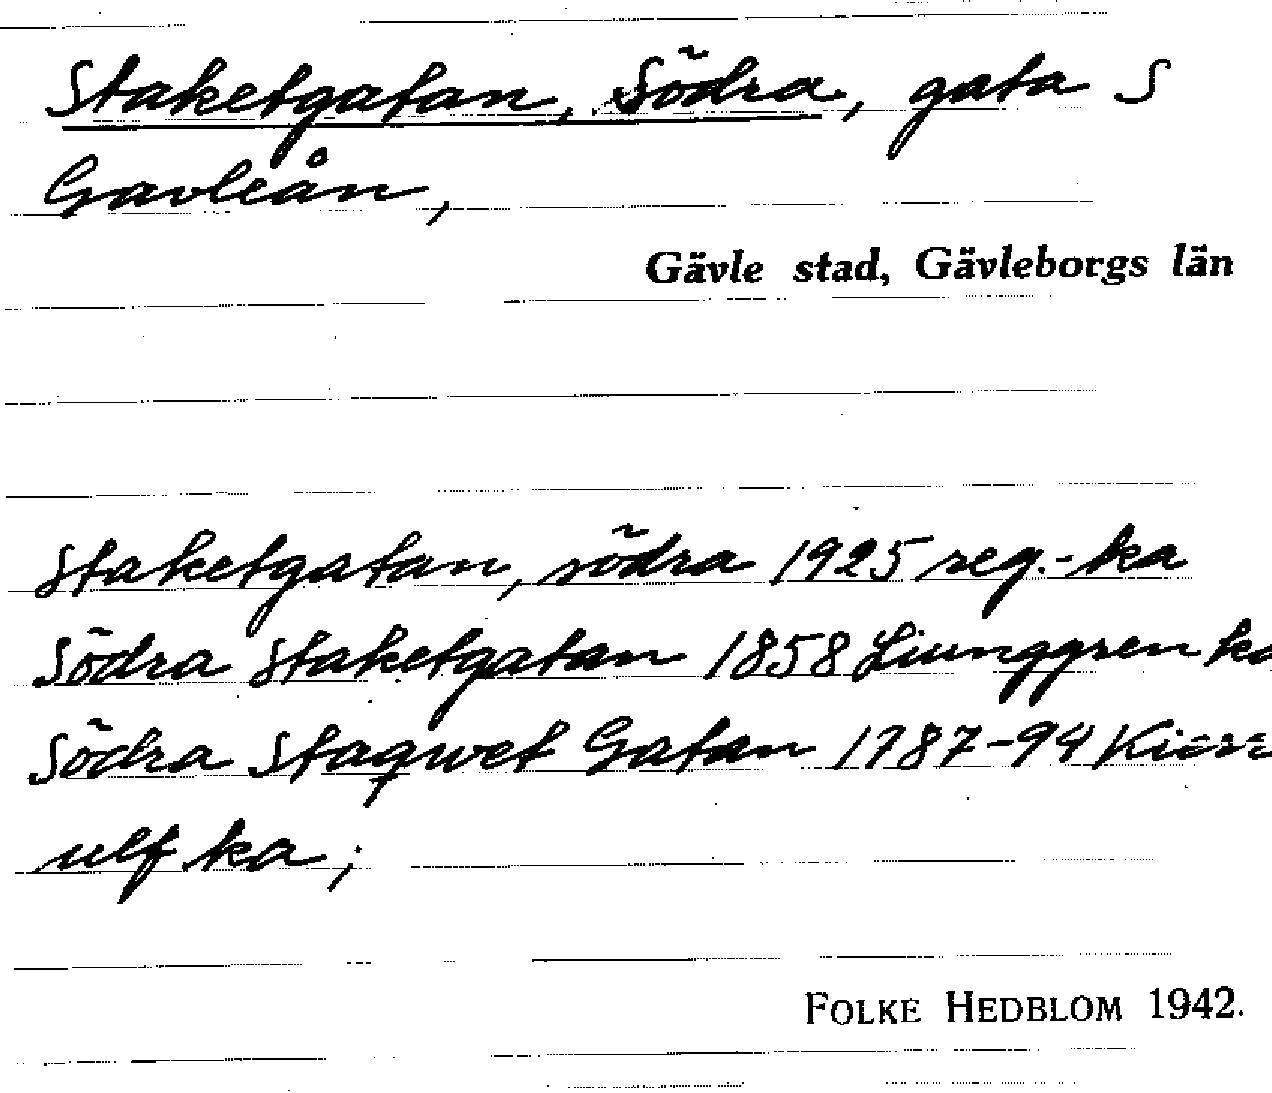 Staketgatan, Södra, gata S
Gavleån,
Gävle stad, Gävleborgs län
Staketgatan, södra 1925 reg.-ka
Södra Staketgatan 1858 Ljunggren ka
Södra Staqwet Gatan 1787-94
ulf ka;
FOLKE HEDBLOM 1942.